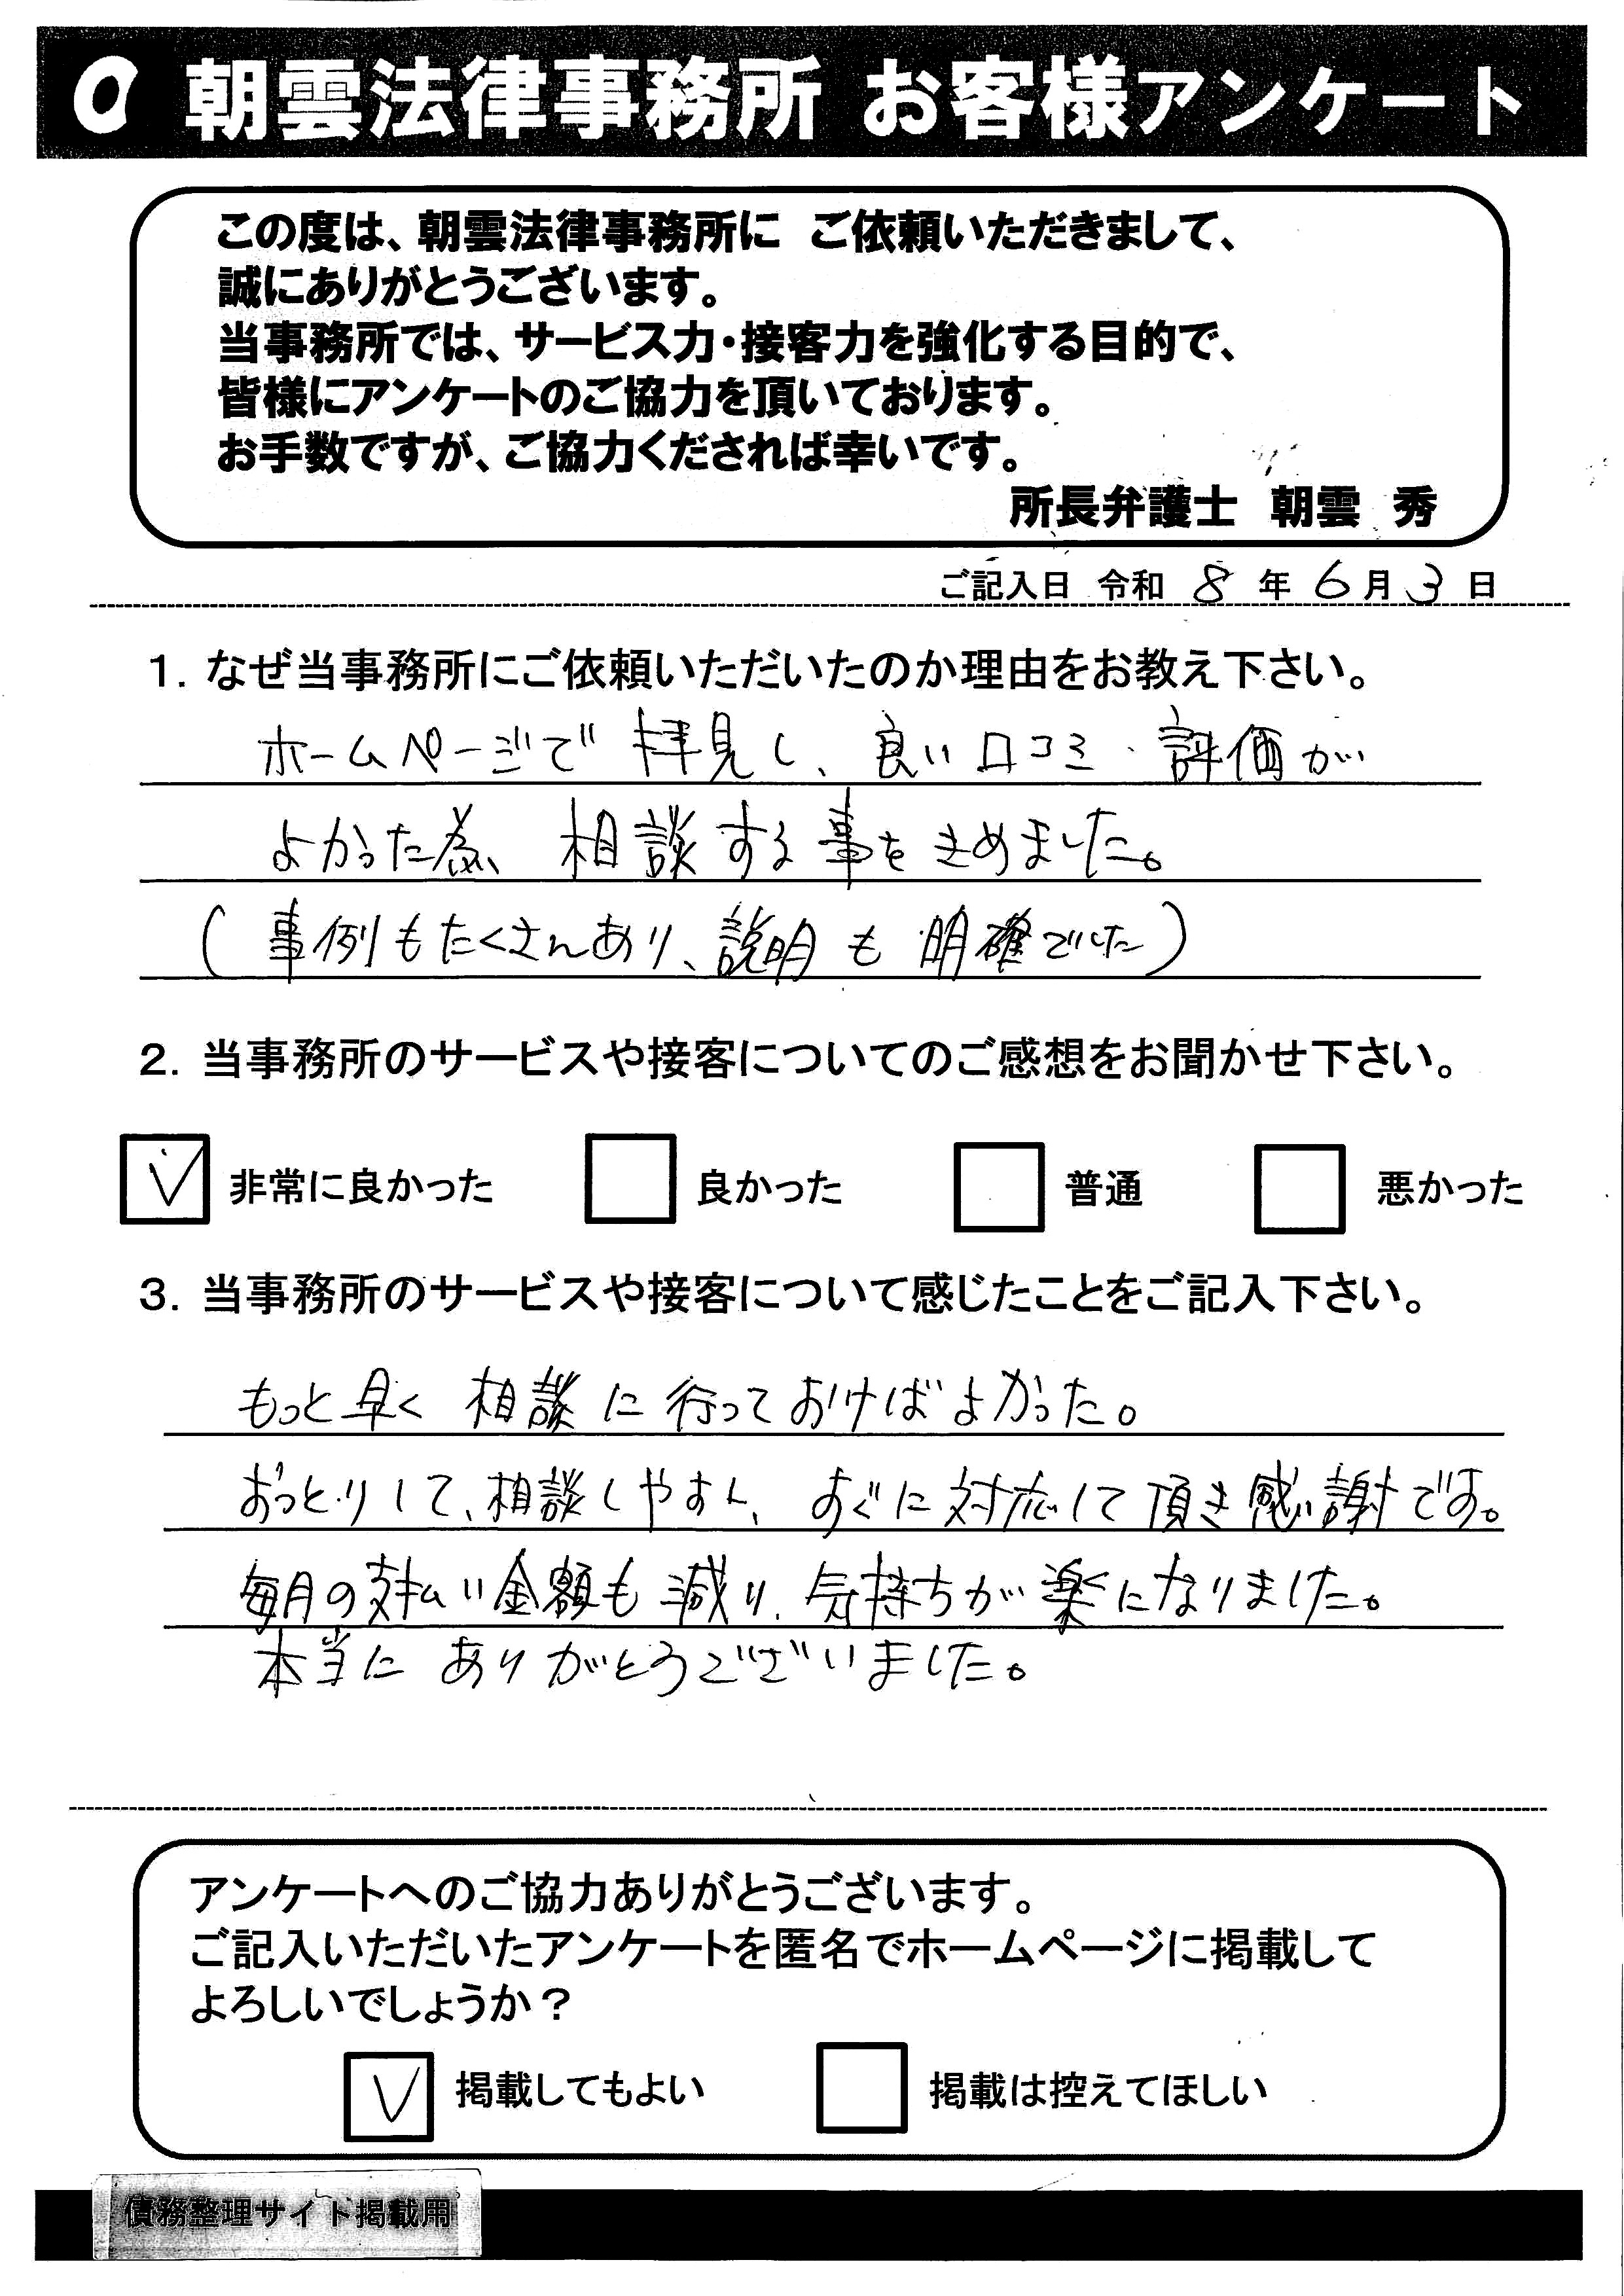 朝雲法律事務所 お客様アンケート
この度は、朝雲法律事務所に ご依頼いただきまして、
誠にありがとうございます。
当事務所では、サービス力・接客力を強化する目的で、
皆様にアンケートのご協力を頂いております。
お手数ですが、ご協力くだされば幸いです。
所長弁護士 朝雲 秀
ご記入日 令和 8 年 6 月 3 日
1. なぜ当事務所にご依頼いただいたのか理由をお教え下さい。
ホームページで 拝見し、良い口コミ・評価が
よかった為、相談する事をきめました。
(事例もたくさんあり、説明も 明確でした)
2. 当事務所のサービスや接客についてのご感想をお聞かせ下さい。
非常に良かった 良かった 普通 悪かった
3. 当事務所のサービスや接客について感じたことをご記入下さい。
もっと早く 相談に行っておけばよかった。
おっとりして、相談しやすく、すぐに対応して頂き感謝です。
毎月の支払い金額も減り、気持ちが楽になりました。
本当に ありがとうございました。
アンケートへのご協力ありがとうございます。
ご記入いただいたアンケートを匿名でホームページに掲載して
よろしいでしょうか？
掲載してもよい 掲載は控えてほしい
債務整理サイト掲載用